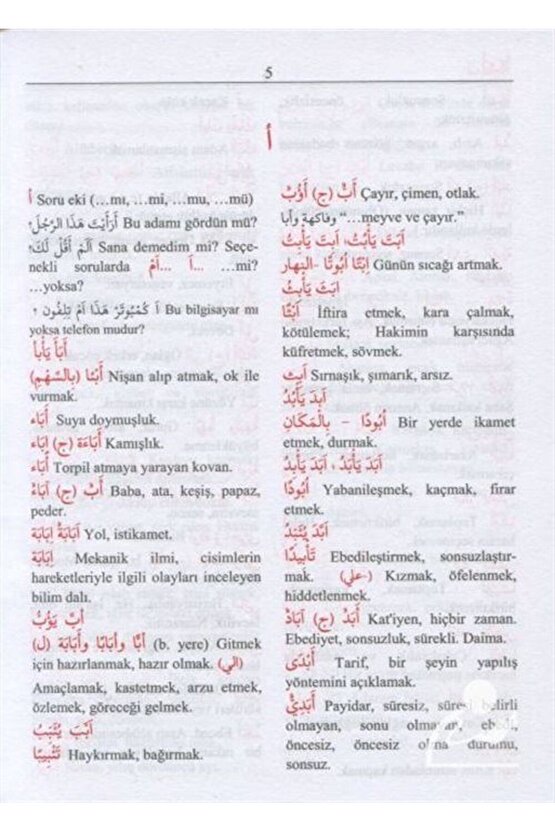 5
أ
أ Soru eki (…mı, …mi, …mu, …mü)
أَرَأَيْتَ هَذَا الرَّجُلَ؟ Bu adamı gördün mü?
أَلَمْ أَقُلْ لَكَ؟ Sana demedim mi? Seçe-
nekli sorularda أ… أَمْ… …mi?
…yoksa?
أَ كُمْبُوتَرُ هَذَا أَمْ تِلِفُون ؟ Bu bilgisayar mı
yoksa telefon mudur?
أَبَأَ يَأْبَأُ
أَبْئًا (بِالسَّهْمِ) Nişan alıp atmak, ok ile
vurmak.
أَبَاء Suya doymuşluk.
أَبَاءَة (ج) أَبَاء Kamışlık.
أَبَاء Torpil atmaya yarayan kovan.
أَبٌ (ج) آبَاءٌ Baba, ata, keşiş, papaz,
peder.
أَبَابَةٌ إِبَابَة Yol, istikamet.
إِبَابَة Mekanik ilmi, cisimlerin
hareketleriyle ilgili olayları inceleyen
bilim dalı.
أَبَّ يَؤُبُّ
أَبًّا وأَبَابًا وأَبَابَة (ل) (b. yere) Gitmek
için hazırlanmak, hazır olmak. (الي)
Amaçlamak, kastetmek, arzu etmek,
özlemek, göreceği gelmek.
أَبَّبَ يُئَبِّبُ
تَئْبِيبًا Haykırmak, bağırmak.
أَبٌّ (ج) أَؤُبٌّ Çayır, çimen, otlak.
وفاكهة وأبا “…meyve ve çayır.”
أَبَتَ يَأْبُتُ، أَبِتَ يَأْبَتُ
أَبْتًا أُبُوتًا –النهار Günün sıcağı artmak.
أَبَثَ يَأْبِثُ
أَبْثًا İftira etmek, kara çalmak,
kötülemek; Hakimin karşısında
küfretmek, sövmek.
أَبِث Sırnaşık, şımarık, arsız.
أَبَدَ يَأْبُدُ
أُبُودًا – بِالْمَكَانِ Bir yerde ikamet
etmek, durmak.
أَبَدَ يَأْبُدُ ، أَبَدَ يَأْبِدُ
أُبُودًا Yabanileşmek, kaçmak, firar
etmek.
أَبَّدَ يُئَبِّدُ
تَأْبِيدًا Ebedileştirmek, sonsuzlaştır-
mak. (-علي) Kızmak, öfelenmek,
hiddetlenmek.
أَبَدٌ (ج) آبَادٌ Kat'iyen, hiçbir zaman.
Ebediyet, sonsuzluk, sürekli. Daima.
أَبْدَى Tarif, bir şeyin yapılış
yöntemini açıklamak.
أَبَدِيٌّ Payidar, süresiz, süresi belirli
olmayan, sonu olmayan, ebedi,
öncesiz, öncesiz olma durumu,
sonsuz.